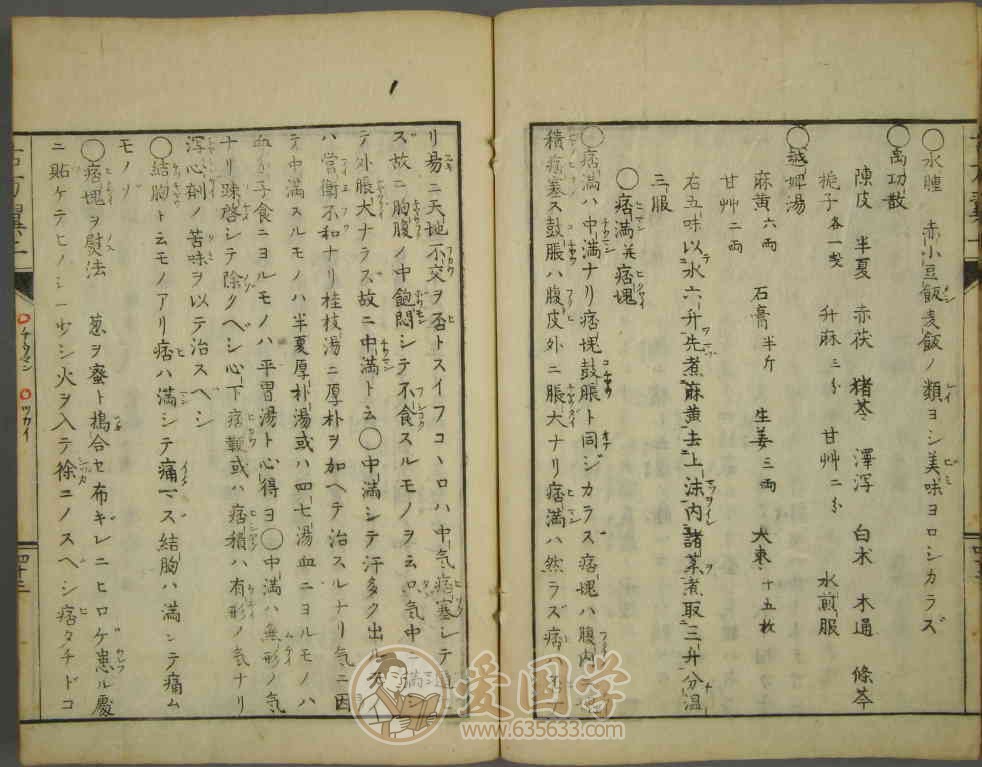 〇水腫 赤小豆飯麦飯ノ類ヨシ美味ヨロシカラズ
〇禹功散
陳皮 半夏 赤茯 猪苓 澤泻 白术 木通 條芩
栀子各一戔 升麻三分 甘艸二分 水煎服
〇越婢湯
麻黄六两 石膏半斤 生姜三两 大枣十五枚
甘艸二两
右五味以水六升先煮麻黄去上沫内諸薬煮取三升分温
三服
〇痞満并痞塊
〇痞満ハ中満ナリ痞塊鼓脹ト同ジカラス痞塊ハ腹内
積痞塞ス鼓脹ハ腹皮外ニ脹大ナリ痞満ハ然ラズ痞
リ易ニ天地不交ヲ否トスイフコヽロハ中気痞塞シテ
ズ故ニ胸腹ノ中飽悶シテ不食スルモノヲ云〇気中満
テ外脹大ナラス故ニ中満ト云〇中満シテ汗多ク出ル
ハ営衛不和ナリ桂枝湯ニ厚朴ヲ加ヘテ治スルナリ気ニ因
テ中満スルモノハ半夏厚朴湯或ハ四七湯血ニヨルモノハ
子食ニヨルモノハ平胃湯ト心得ヨ〇中満ハ無形ノ気
ナリ疎啓シテ除クベシ心下痞鞕或ハ痞積ハ有形ノ気ナリ
泻心剤ノ苦味ヲ以テ治スヘシ
〇結胸ト云モノアリ痞ハ満シテ痛マズ結胸ハ満シテ痛ム
モノゾ
〇痞塊ヲ熨法 葱ヲ蜜ト搗合セ布ギレニヒロゲ患ル處
ニ貼ケテヒノシニ少シ火ヲ入テ徐ニノスヘシ痞タチドコ
四十三
〇チウマン 〇ツカイ
爱国学
www.635633.com